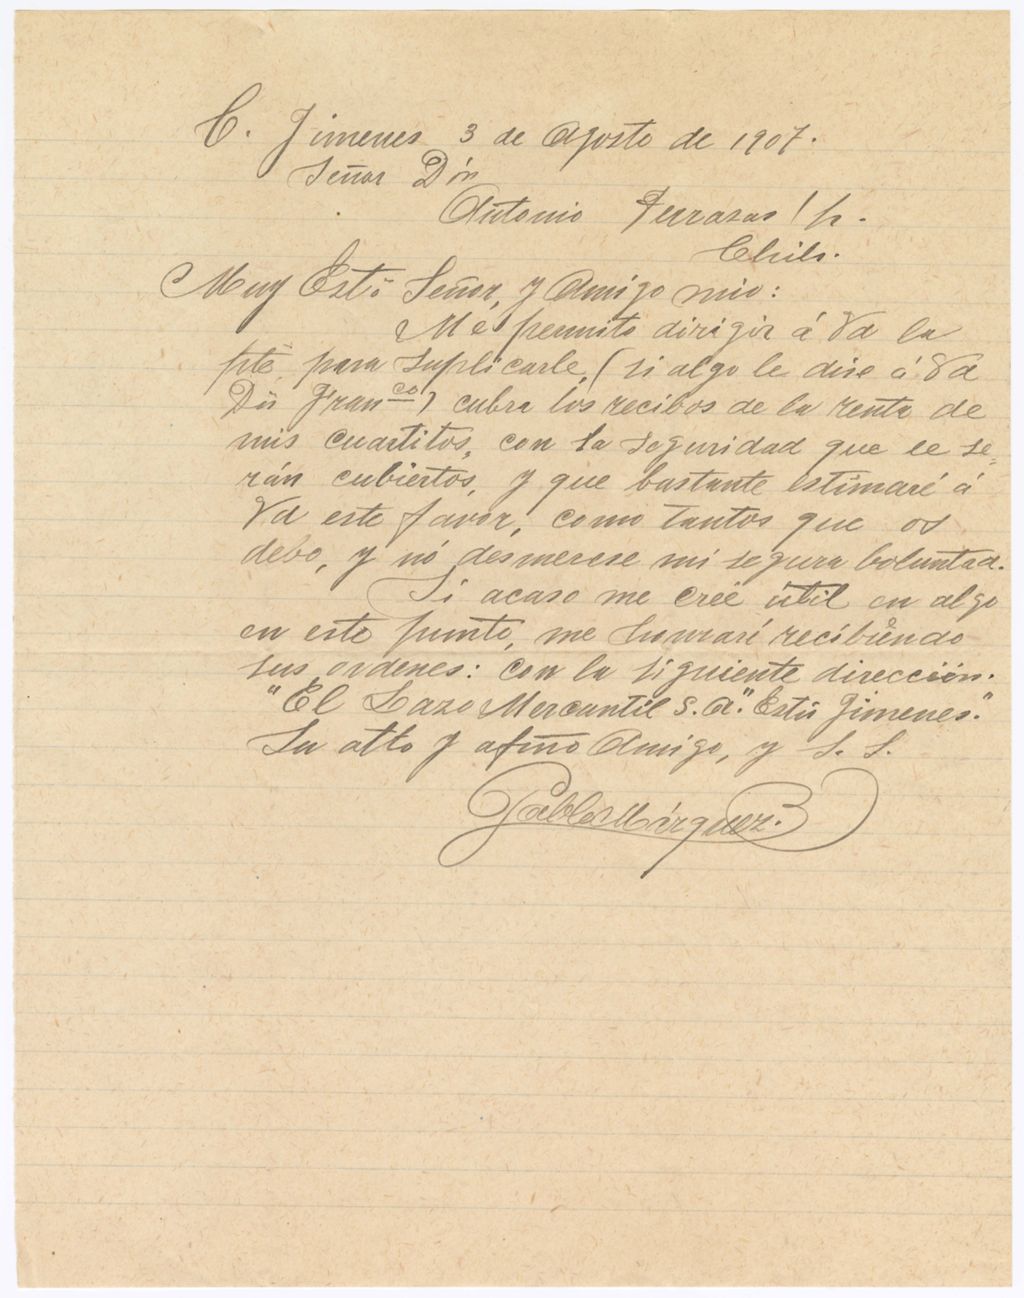 C. Jimenes 3 de Agosto de 1907.
Señor Dón
Antonio Terrasas / h.
Chih.
Muy Estº Señor, y Amigo mio:
Me permito dirigir á Vd la
pte para suplicarle, (si algo le dise á Vd
Dn Franco) cubra los recibos de la renta de
mis cuartitos, con la seguridad que le se-
rán cubiertos, y que bastante estimaré á
Vd este favor, como tantos que os
debo, y nó desmerese mi segura boluntad.
Si acaso me creé útil en algo
en este punto, me honraré recibiendo
sus ordenes: con la siguiente dirección.
"El Lazo Mercantil S. A." Estn Jimenes."
Su atto y afmo Amigo, y S. S.
Pablo Márquez.